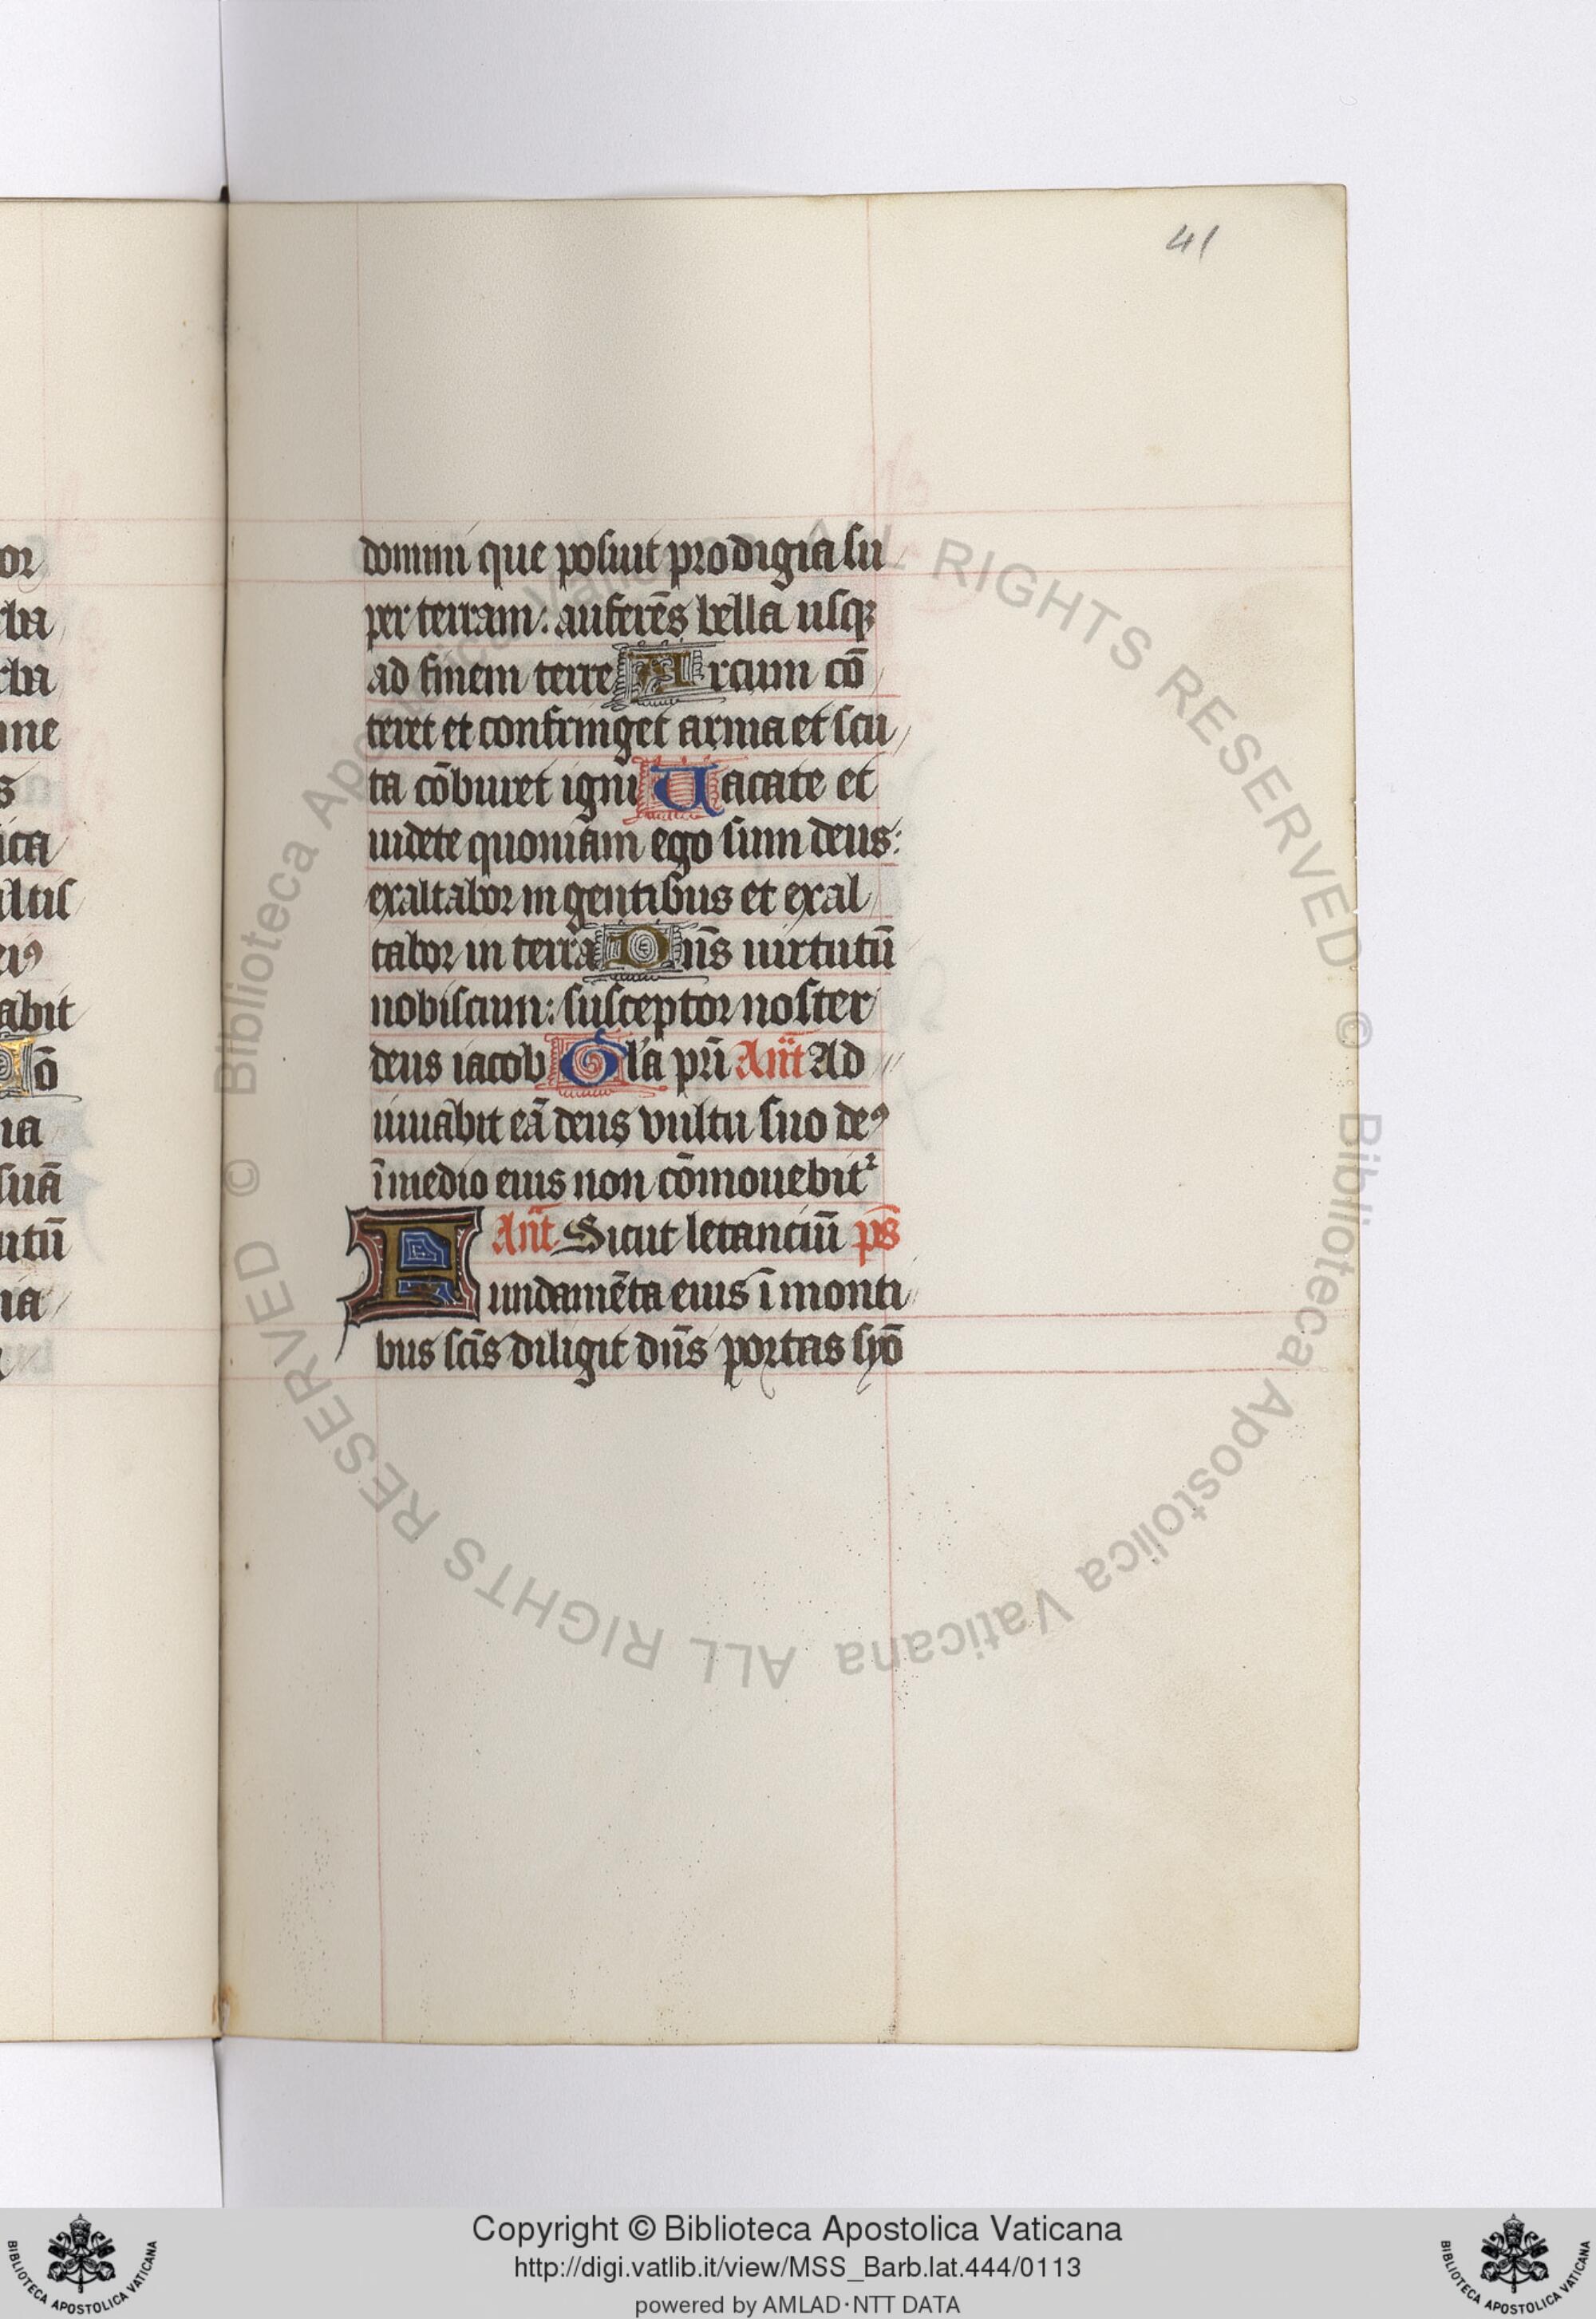 41
domini que posuit prodigia su
per terram: auferēs bella usqꝫ
ad finem terre Arcum cō
teret et confringet arma et scu
ta cōburet igni Uacate et
uidete quoniam ego sum deus:
exaltabor in gentibus et exal
tabor in terra Dn̄s uirtutū
nobiscum: susceptor noster
deus iacob Gl'a pr̄i Ant̄ Ad
iuuabit eā deus vultu suo deꝰ
ī medio eius non cōmouebit᷑
Ant̄ Sicut letanciū ps̄
Fundamēta eius ī monti
bus sc̄is diligit dn̄s portas syō
or
rba
rba
ne
s
ica
ultis
eiꝰ
abit
ō
ia
suā
utū
ia
© Biblioteca Apostolica Vaticana ALL RIGHTS RESERVED © Biblioteca Apostolica Vaticana ALL RIGHTS RESERVED
Copyright © Biblioteca Apostolica Vaticana
http://digi.vatlib.it/view/MSS_Barb.lat.444/0113
powered by AMLAD·NTT DATA
BIBLIOTECA APOSTOLICA VATICANA
BIBLIOTECA APOSTOLICA VATICANA